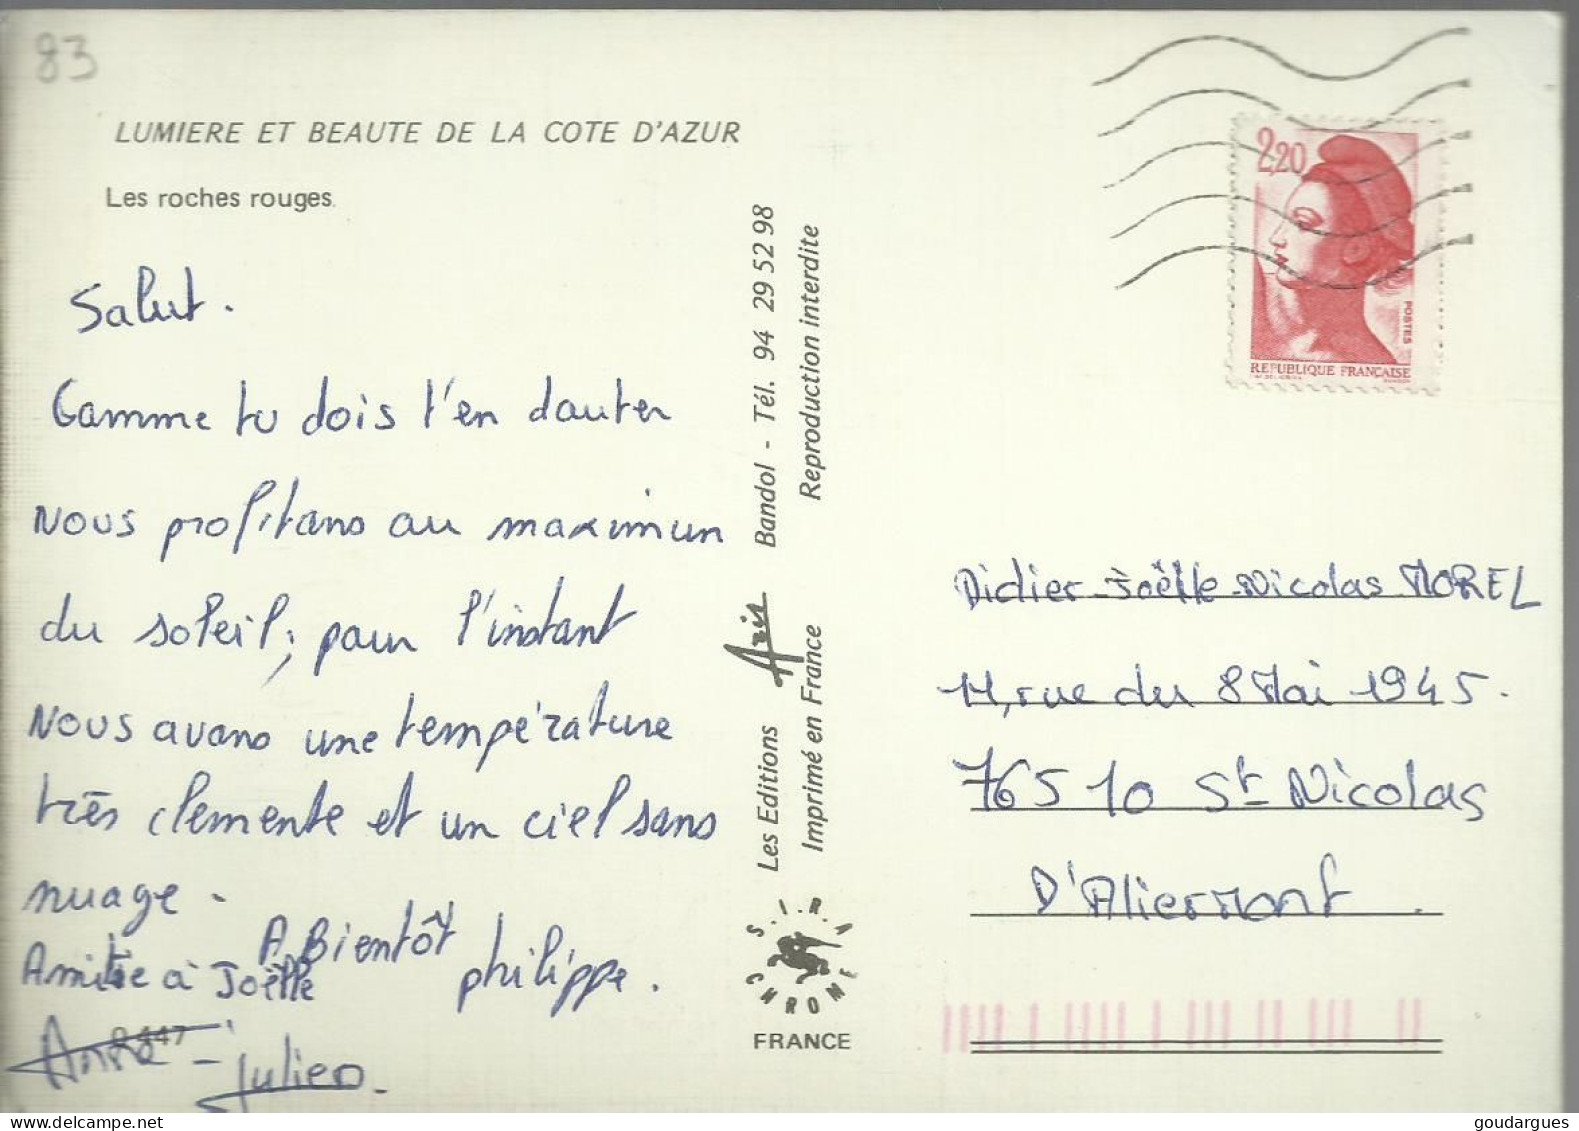 83
LUMIERE ET BEAUTE DE LA COTE D'AZUR
Les roches rouges.
Salut.
Comme tu dois t'en douter
Nous profitons au maximun
du soleil, pour l'instant
Nous avons une température
très clemente et un ciel sans
nuage.
A Bientôt
philippe.
Amitié à Joëlle
Anne - julien.
Les Editions Aris Bandol - Tél. 94 29 52 98
Imprimé en France Reproduction interdite
S.I.R.A
CHROME
FRANCE
2,20
POSTES
REPUBLIQUE FRANÇAISE
Didier Joëlle Nicolas MOREL
11, rue du 8 Mai 1945.
76510 St Nicolas
D'Aliermont.
goudargues